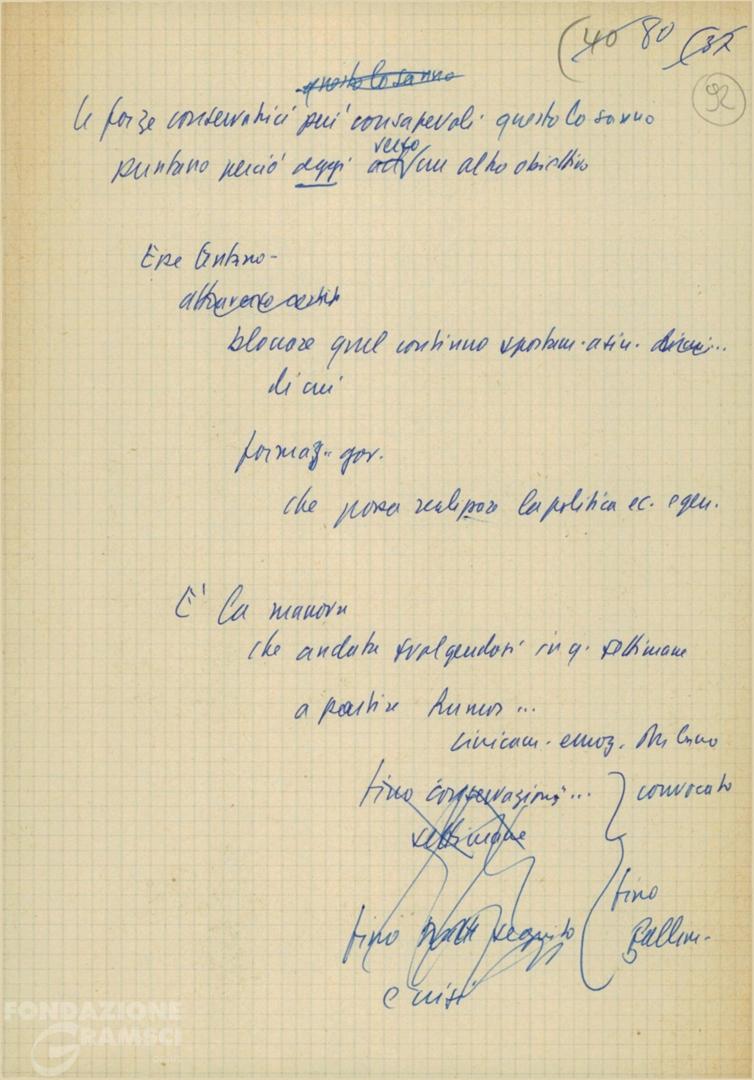 (40 80 (37
92
questo lo sanno
le forze conservatrici più consapevoli questo lo sanno
verso
puntano perciò oggi ad un altro obiettivo
Esse tentano -
attraverso
bloccare quel continuo spostam. a sin. di cui...
di cui
formaz. gov.
che possa realizzare la politica ec. e gen.
E' la manovra
che andata svolgendosi in q. settimane
a partire Rumor...
cinicam. emoz. Milano
fino conservazioni... convocato
settimane
fino seguito
fino
e crisi
FONDAZIONE
GRAMSCI